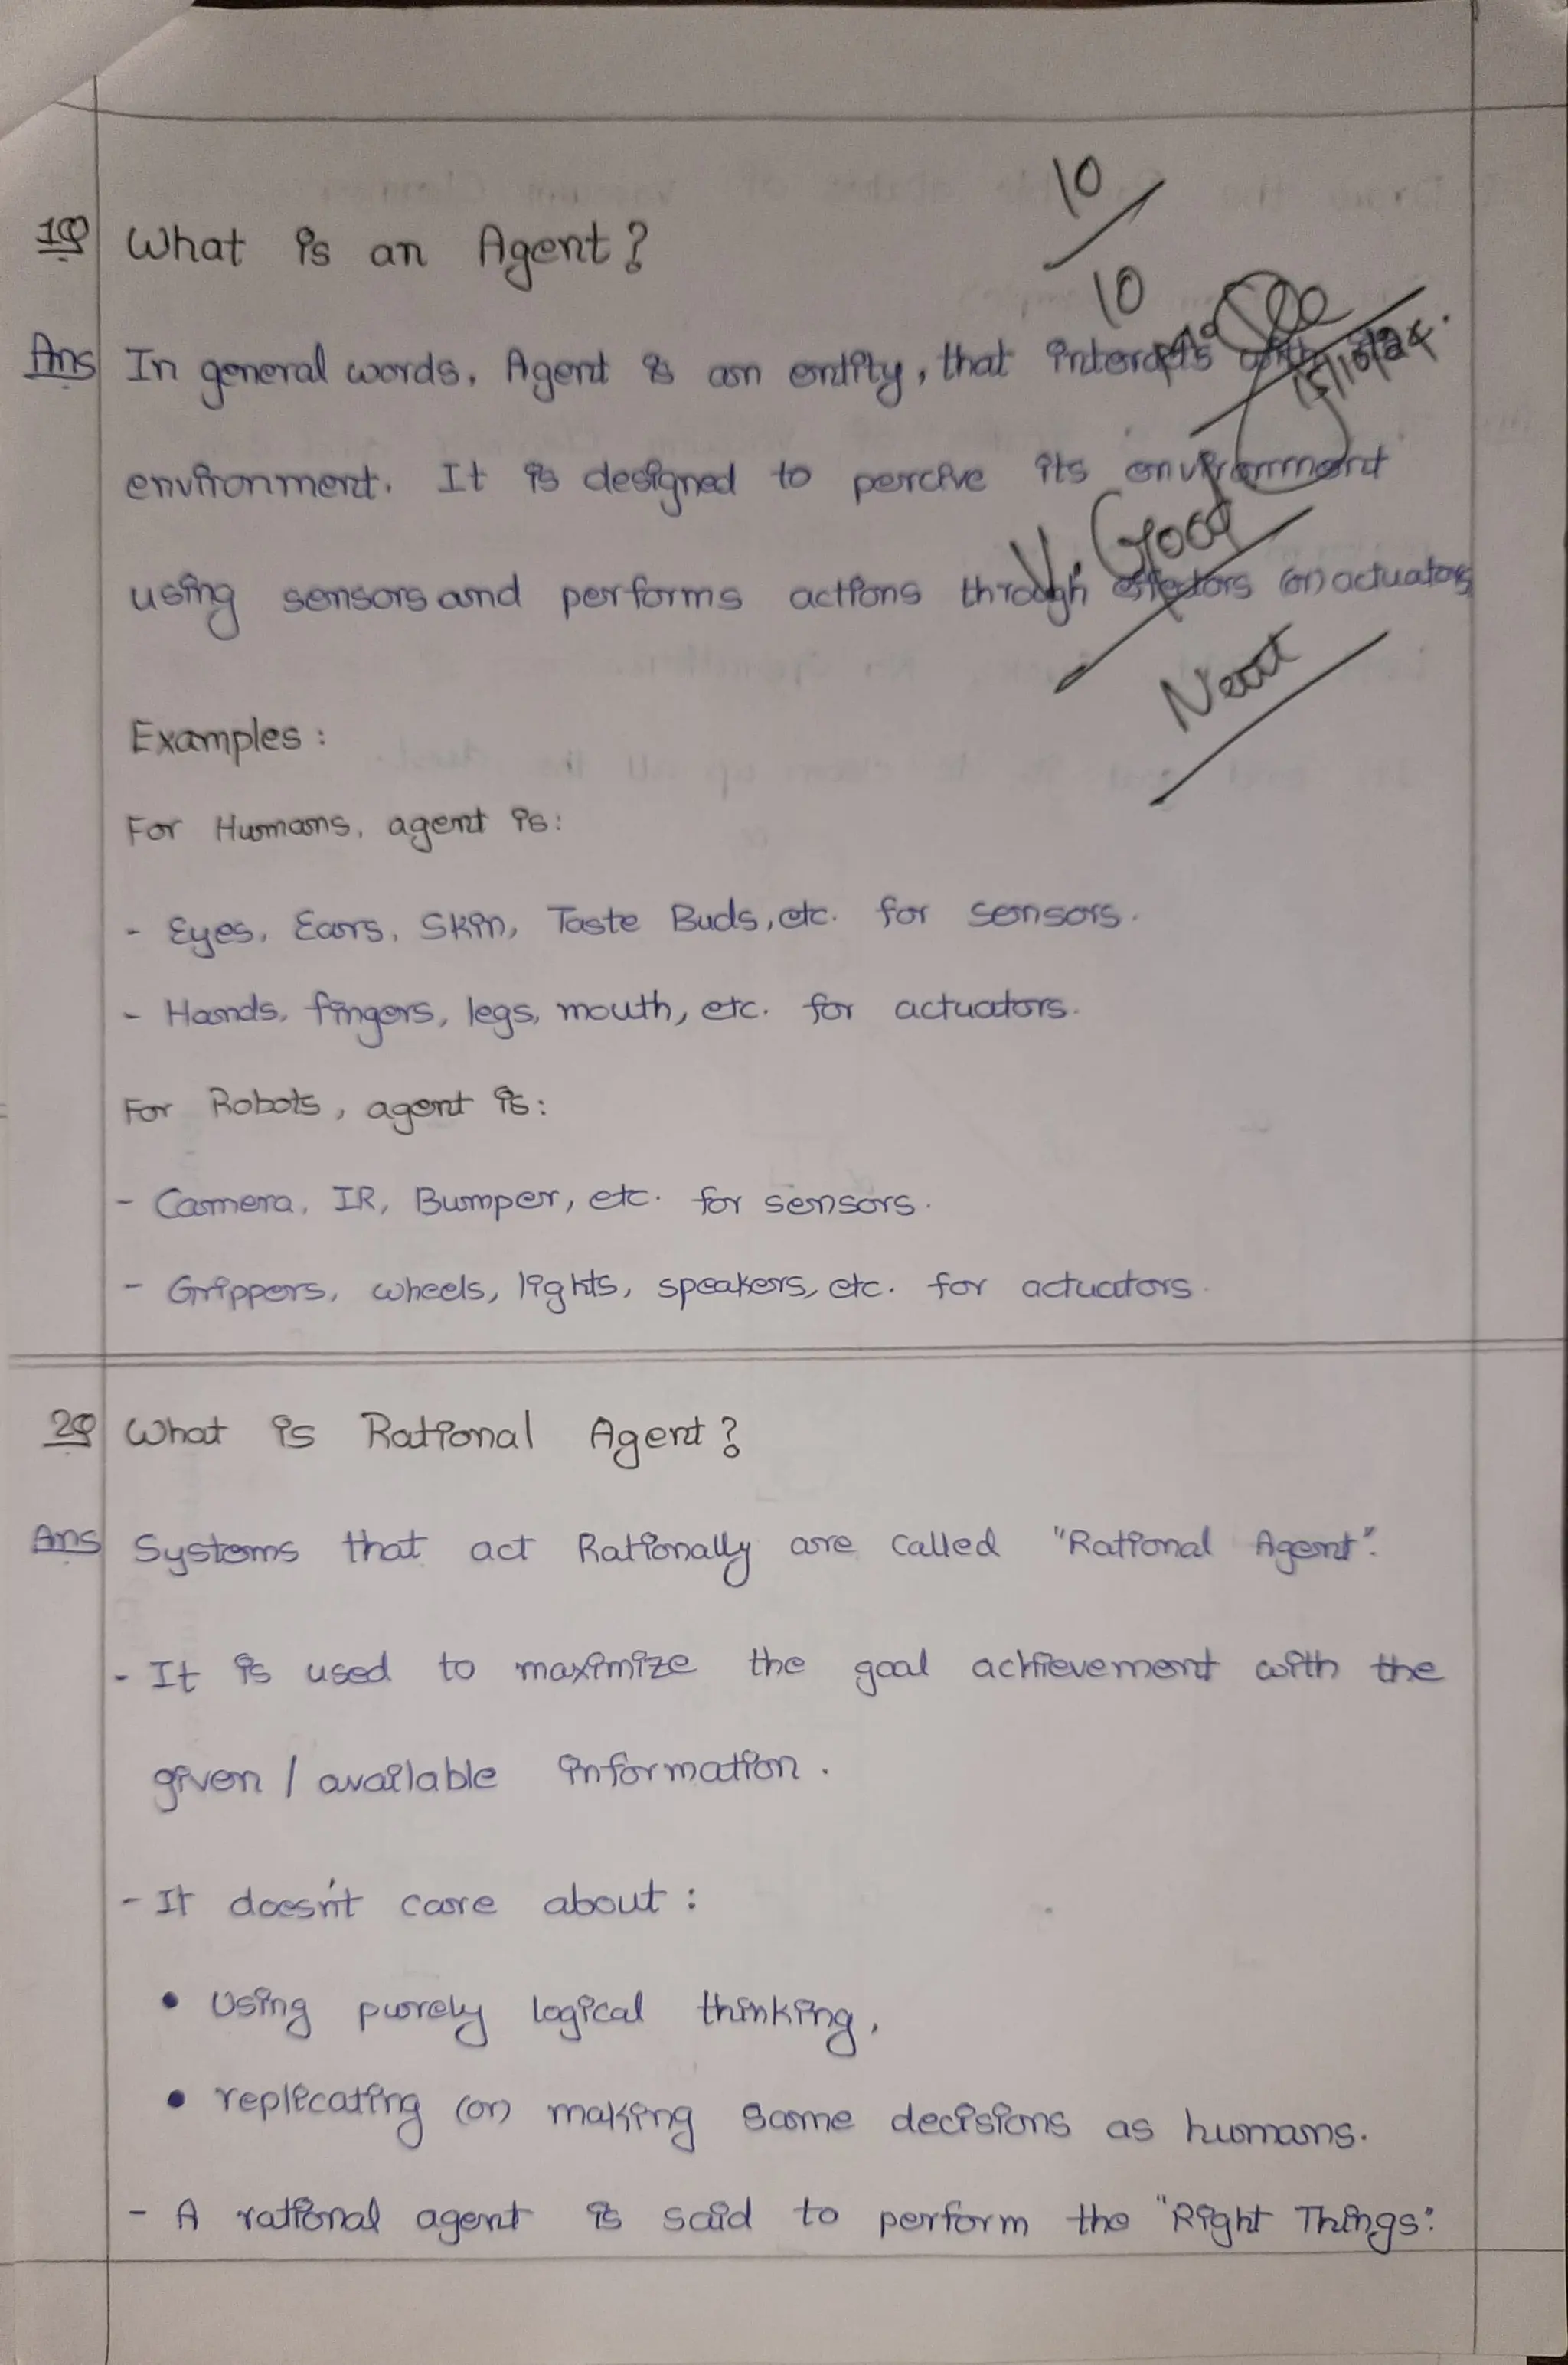 10
10
1Q What is an Agent?
Ans In general words, Agent is an entity, that interacts with
15/10/24.
environment. It is designed to percive its environment
V. Good
using sensors and performs actions through effectors (or) actuators
Neat
Examples :
For Humans, agent is:
- Eyes, Ears, Skin, Taste Buds, etc. for sensors.
- Hands, fingers, legs, mouth, etc. for actuators.
For Robots, agent is:
- Camera, IR, Bumper, etc. for sensors.
- Grippers, wheels, lights, speakers, etc. for actuators.
2Q What is Rational Agent?
Ans Systems that act Rationally are called "Rational Agent".
- It is used to maximize the goal achievement with the
given / available information.
- It doesn't care about :
• Using purely logical thinking,
• replicating (or) making same decisions as humans.
- A rational agent is said to perform the "Right Things".